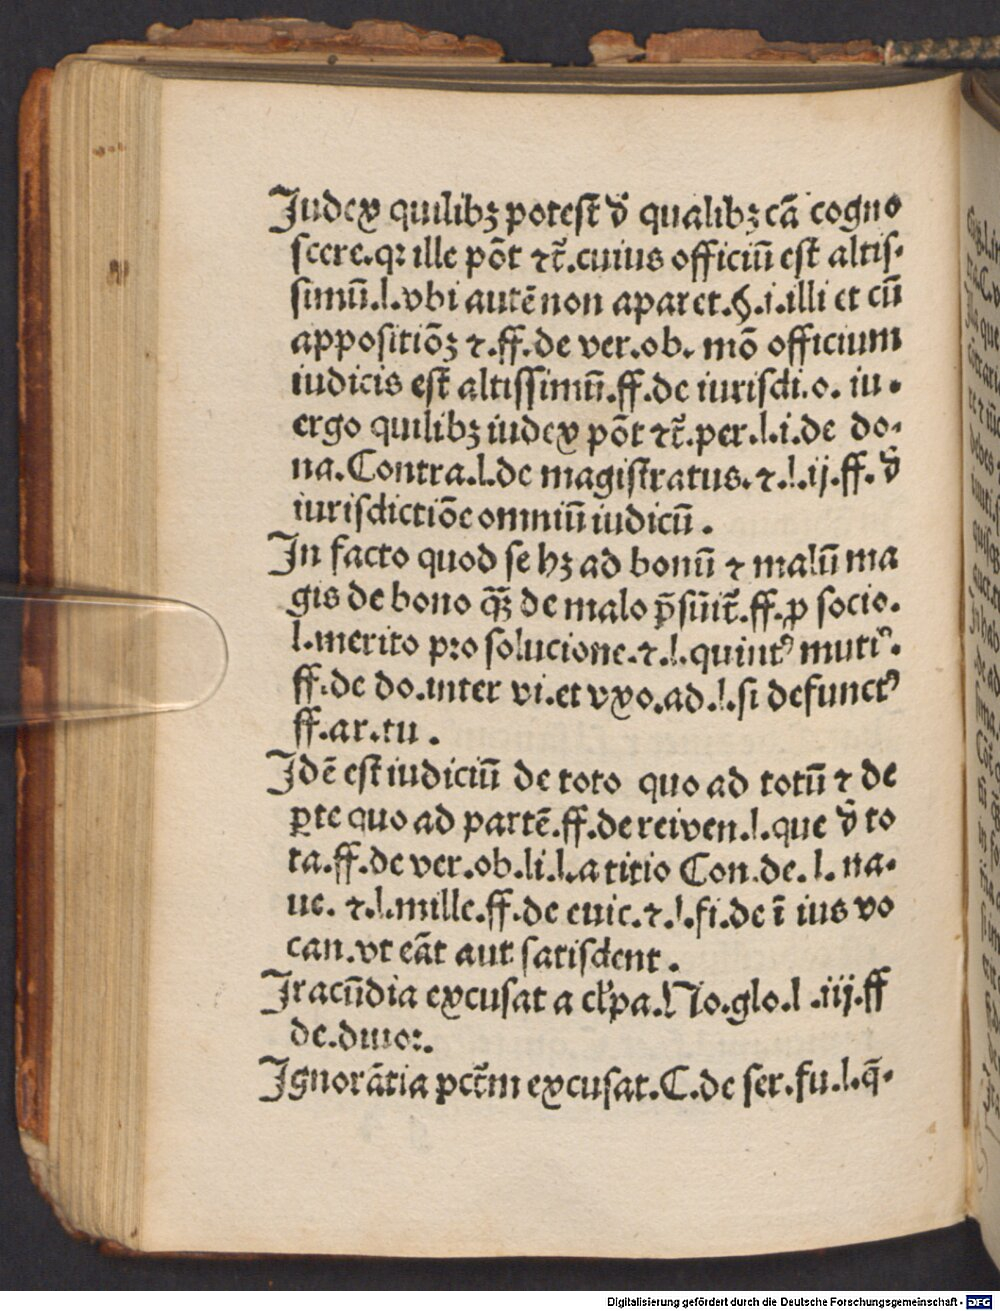 Iudex quilibꝫ potest̄ đ qualibꝫ cā cogno
scere.qꝛ ille pōt ⁊c̄.cuius officiū est altis-
simū.l.vbi autē non aparet.§.i.illi et cū
appositiōꝫ ⁊.ff.de ver.ob. mō officium
iudicis est altissimū.ff.de iurisdi.o. iu.
ergo quilibꝫ iudex pōt ⁊c̄.per.l.i.de do-
na.Contra.l.de magistratus.⁊.l.ij.ff.đ
iurisdictiōe omniū iudicū.
In facto quod se hꝫ ad bonū ⁊ malū ma
gis de bono qꝫ̄ de malo p̄sūit̄.ff.ꝓ socio.
l.merito pro solucione.⁊.l.quintꝰ mutiꝰ.
ff.de do.inter vi.et vxo.ad.l.si defunctꝰ
ff.ar.tu.
Idē est iudiciū de toto quo ad totū ⁊ de
ꝑte quo ad partē.ff.de rei ven.l.que đ to
ta.ff.de ver.ob.li.l.a titio Con.de.l.na-
ue. ⁊.l.mille.ff.de euic.⁊.l.fi.de ī ius vo
can.vt eāt aut satisdent.
Iracūdia excusat a cl̄pa.No.glo.l.iij.ff
de.diuoꝛ.
Ignorātia pctm̄ excusat.C.de ser.fu.l.q̄-
Digitalisierung gefördert durch die Deutsche Forschungsgemeinschaft - DFG